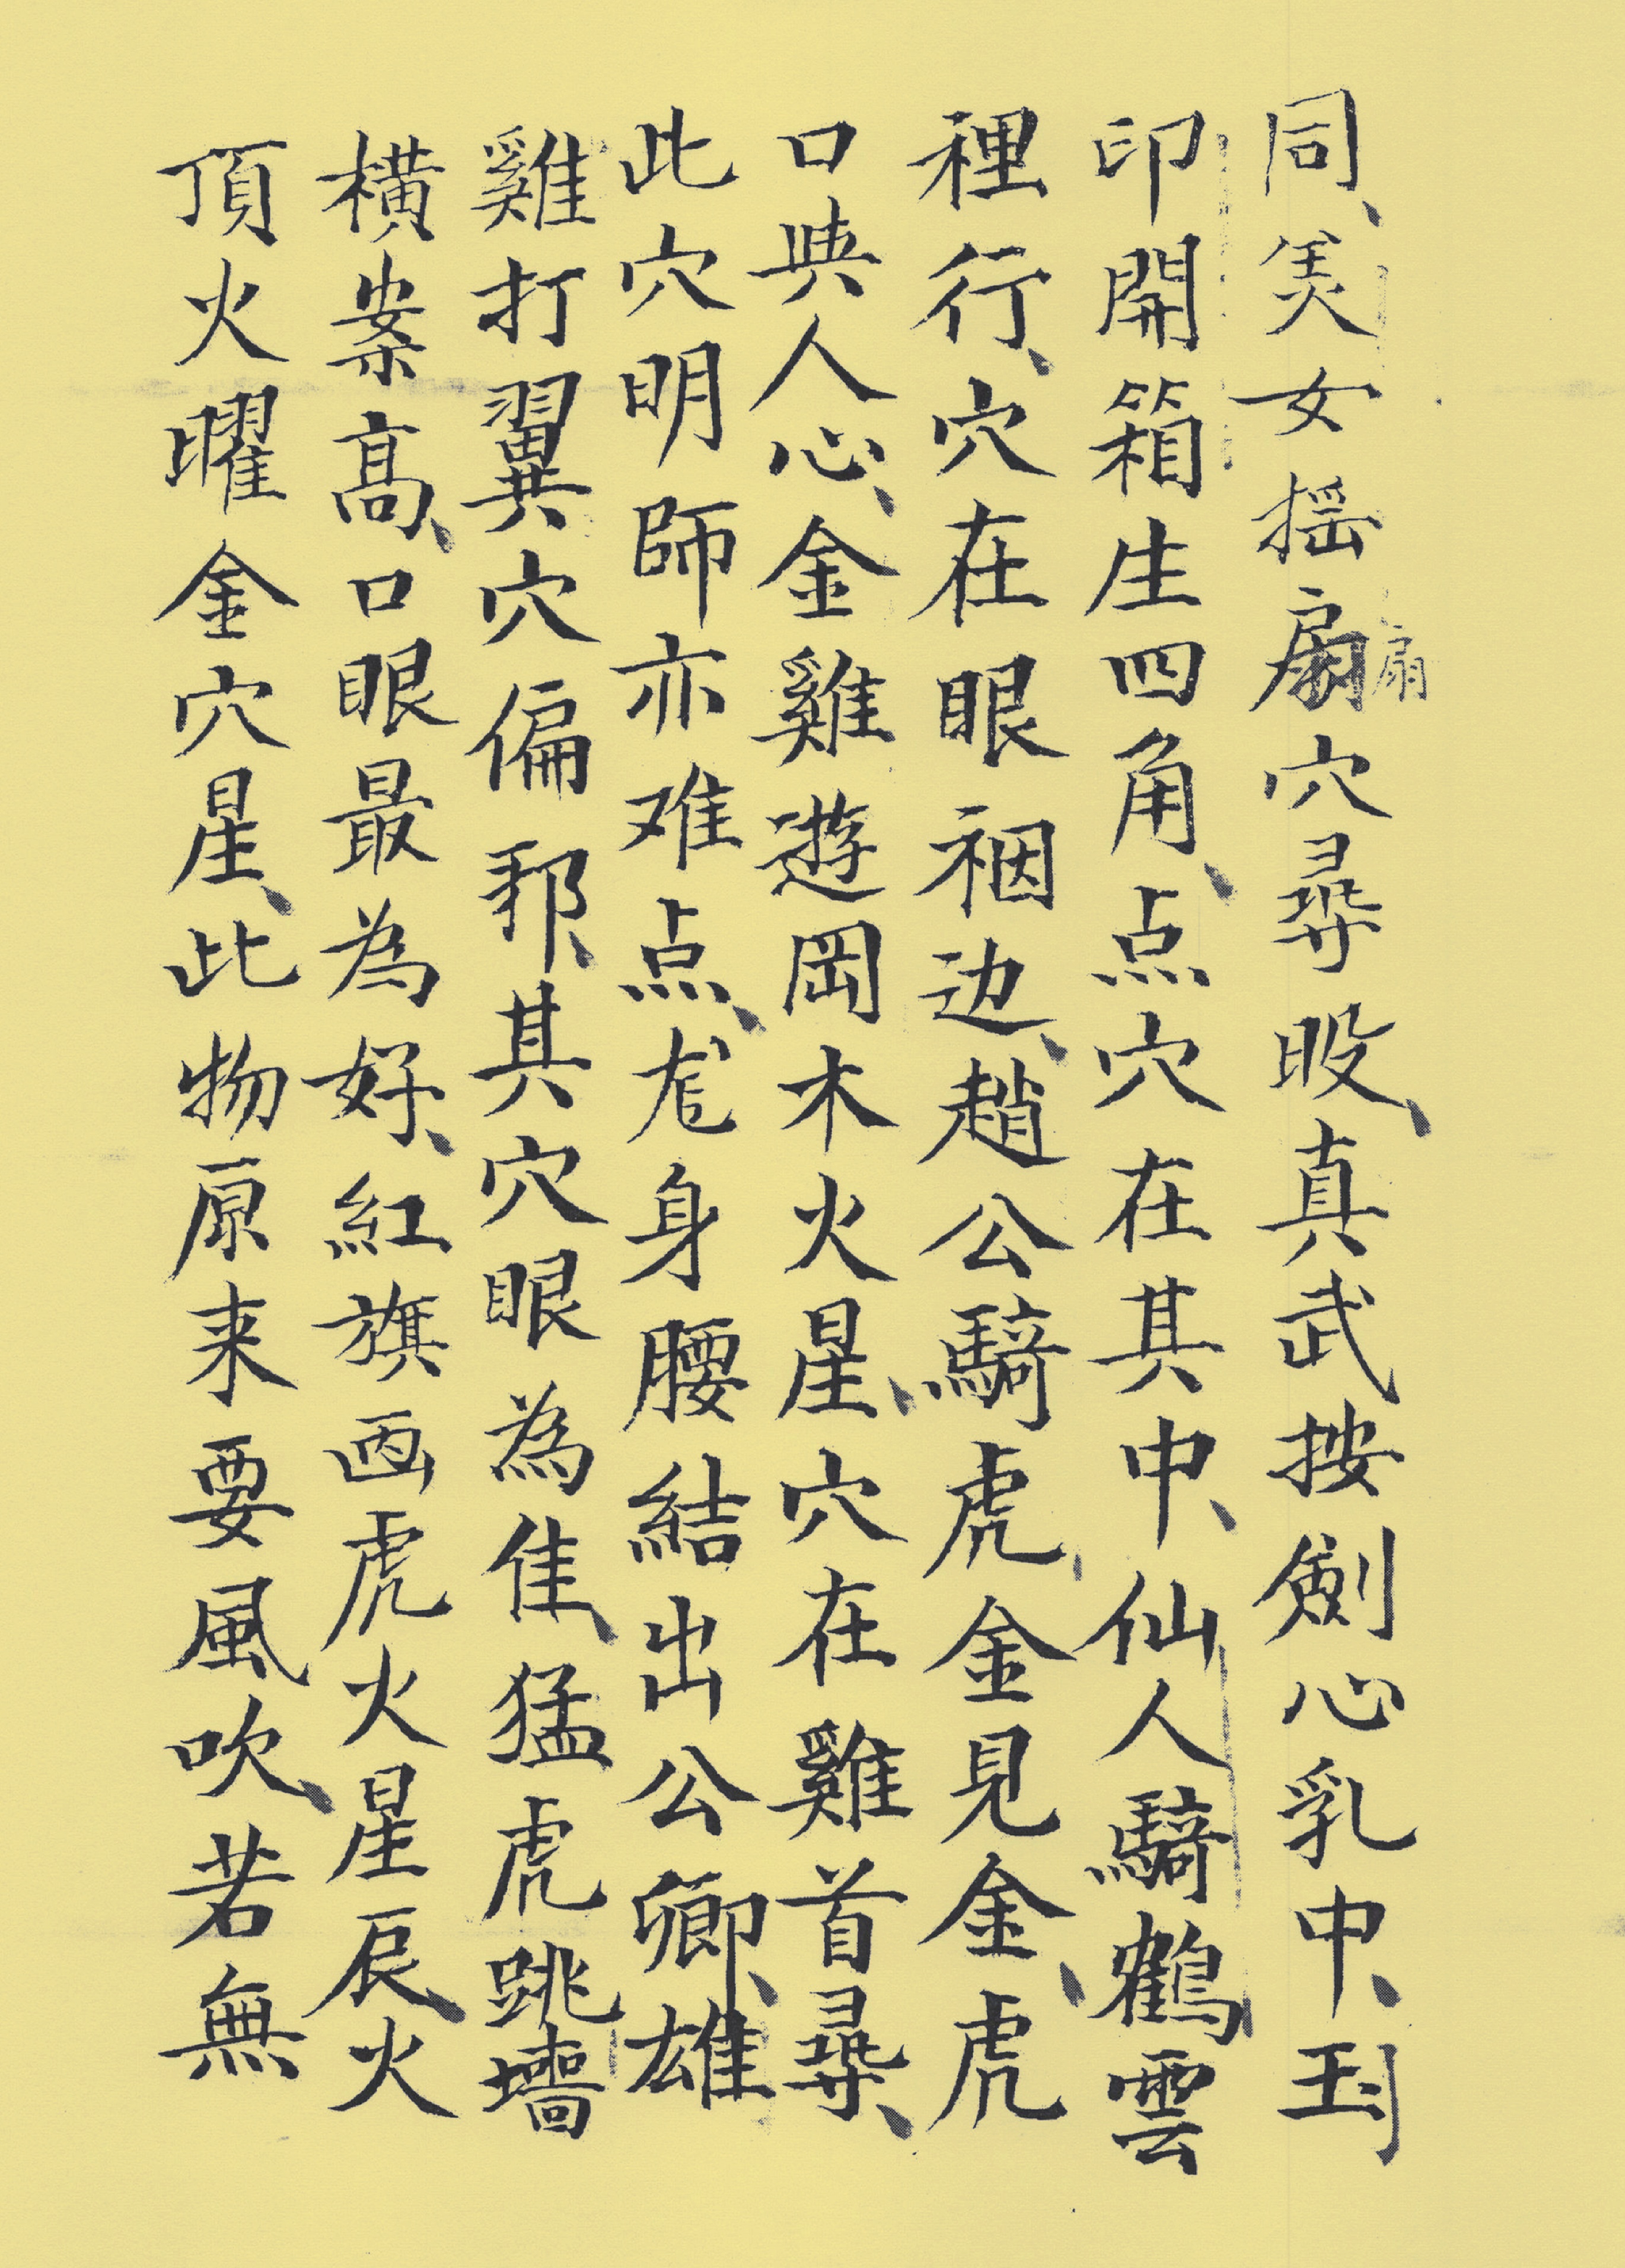 同、美女摇扇穴尋股、真武按劍心乳中、玉
扇
印開箱生四角、点穴在其中、仙人騎鶴雲
裡行、穴在眼裀边、趙公騎虎金見金、虎
口與人心、金雞遊岡木火星、穴在雞首尋、
此穴明師亦难点、龙身腰結出公卿、雄
雞打翼穴偏邪、其穴眼為佳、猛虎跳墻
橫案高、口眼最為好、紅旗画虎火星辰、火
頂火曜金穴星、此物原来要風吹、若無